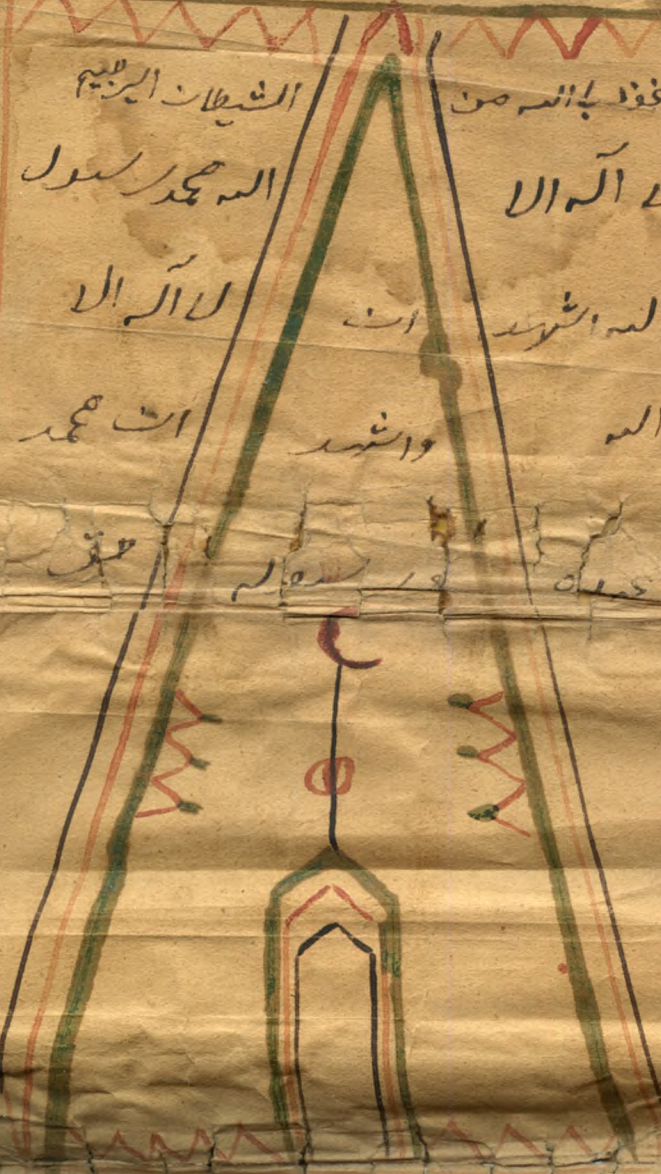 عوذ باالله من الشيطان اليرجيم
لا آله الا الله محمد رسول
لله اشهد ان لا آله الا
الله واشهد ان محمد
عبده ورسوله حق